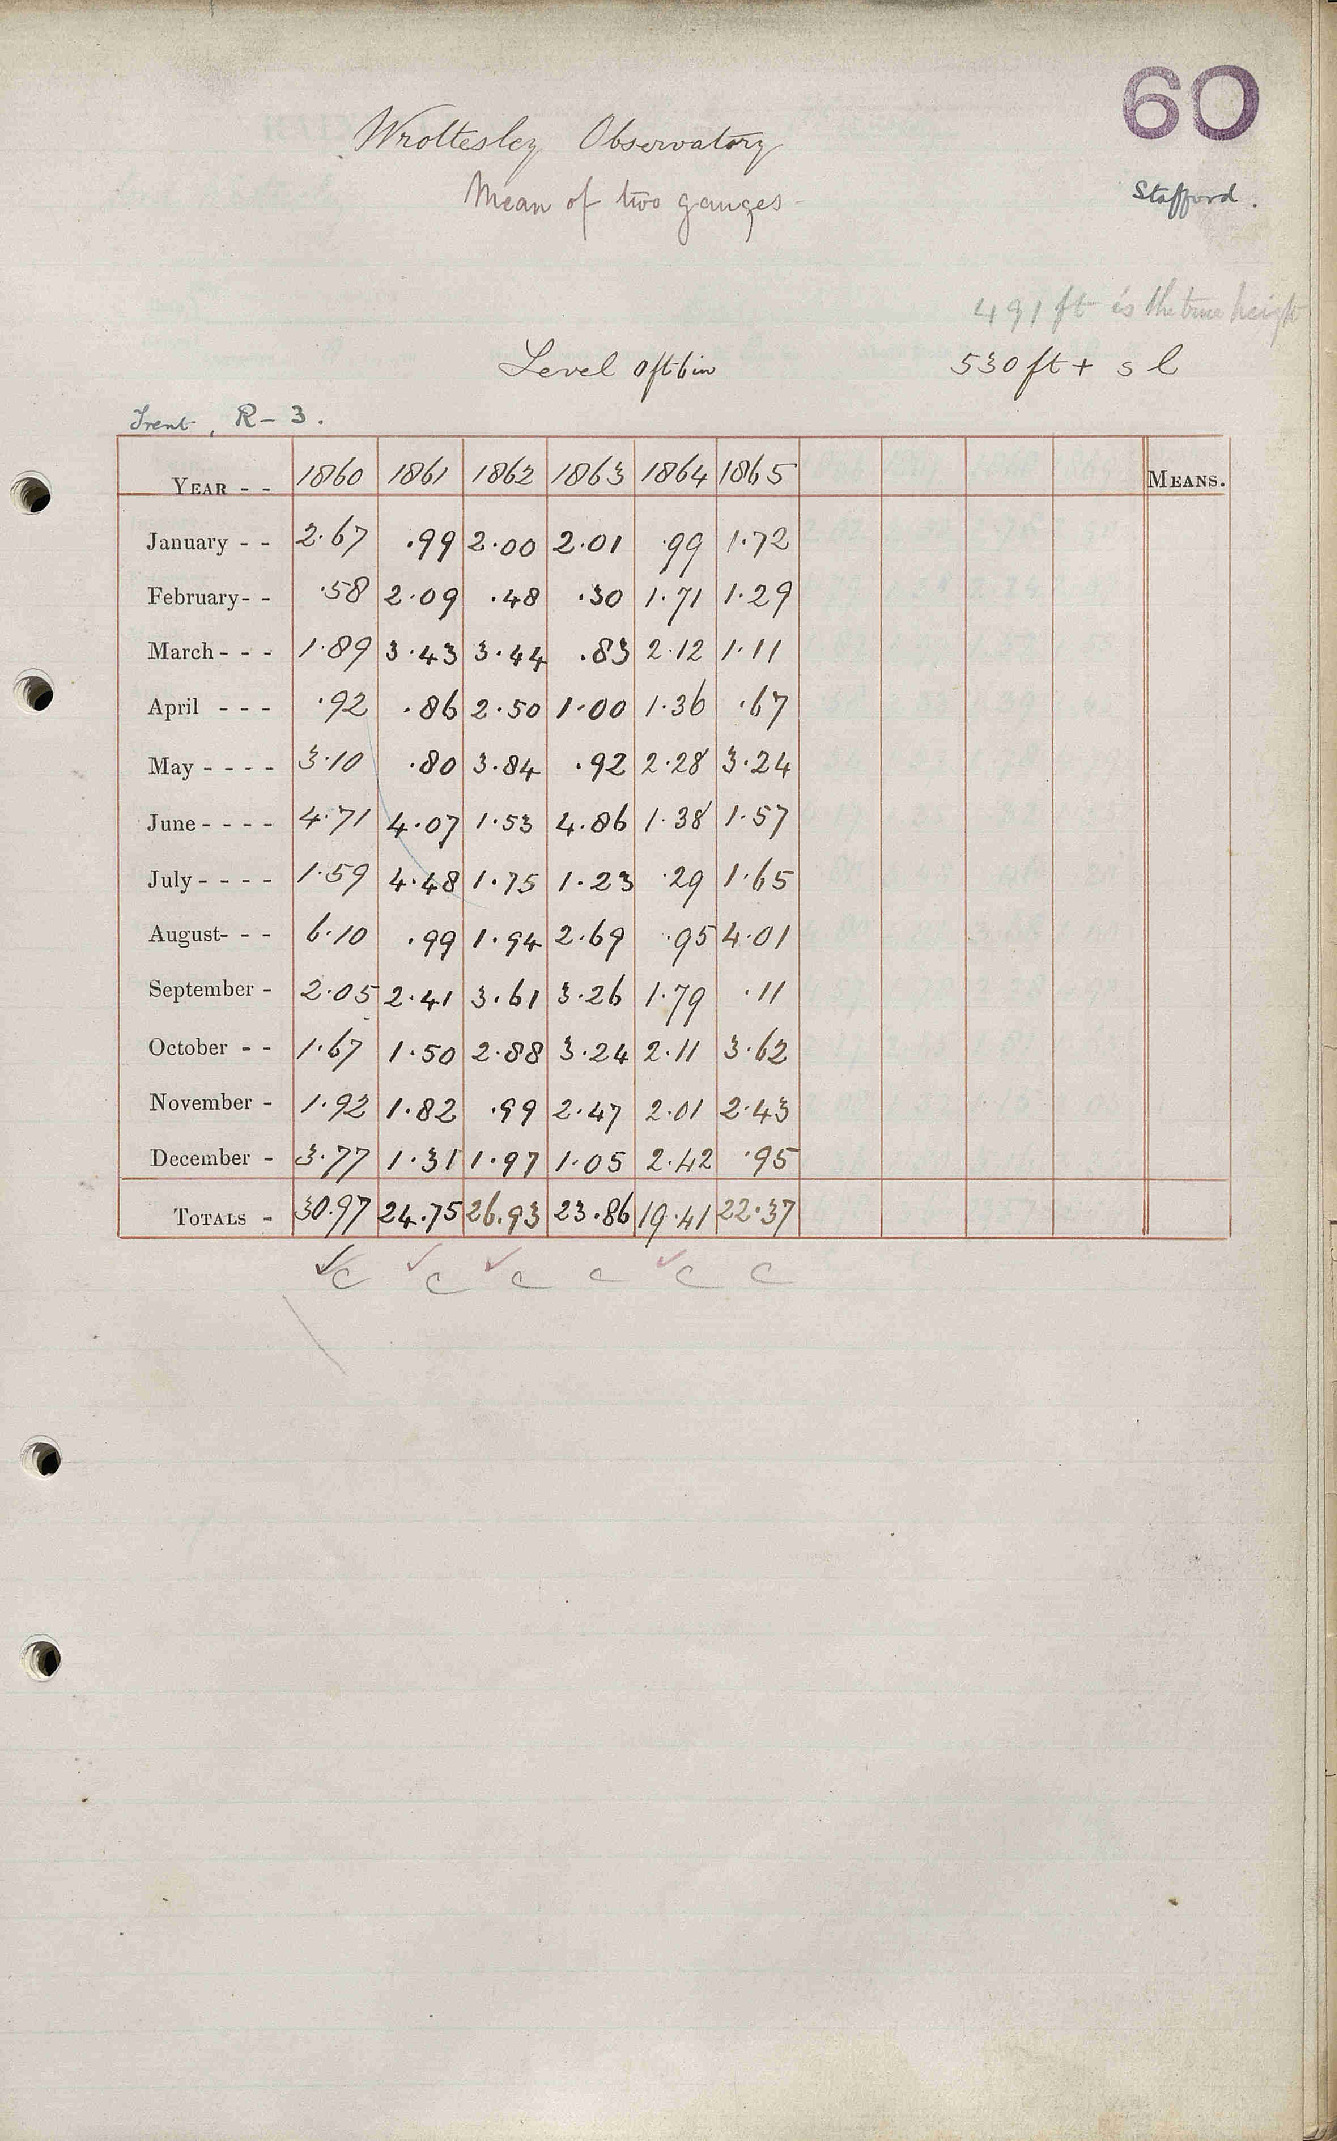 60
Wrottesley Observatory
Mean of two gauges
Stafford.
491 ft is the true height
Level 0ft 6in 530 ft + s l
Trent, R-3.
YEAR - - 1860 1861 1862 1863 1864 1865 MEANS.
January - - 2.67 .99 2.00 2.01 .99 1.72
February- - .58 2.09 .48 .30 1.71 1.29
March - - - 1.89 3.43 3.44 .83 2.12 1.11
April - - - .92 .86 2.50 1.00 1.36 .67
May - - - - 3.10 .80 3.84 .92 2.28 3.24
June - - - - 4.71 4.07 1.53 4.86 1.38 1.57
July - - - - 1.59 4.48 1.75 1.23 .29 1.65
August- - - 6.10 .99 1.94 2.69 .95 4.01
September - 2.05 2.41 3.61 3.26 1.79 .11
October - - 1.67 1.50 2.88 3.24 2.11 3.62
November - 1.92 1.82 .99 2.47 2.01 2.43
December - 3.77 1.31 1.97 1.05 2.42 .95
TOTALS - 30.97 24.75 26.93 23.86 19.41 22.37
✓c ✓c ✓c c ✓c c